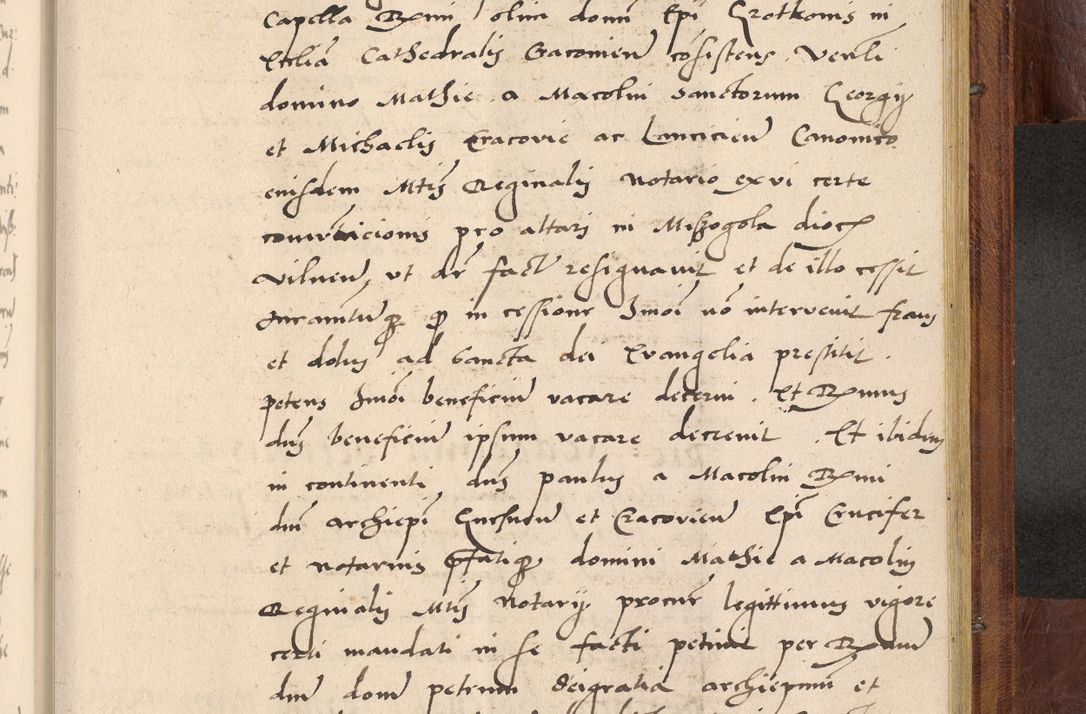 Capella Rmi olim domi Epi Grotkonis in
Ecclia Cathedralis Cracouien cosistens. Venli
domino Mathie a Macolin Sanctorum Georgij
et Michaelis Cracovie ac Lancicien Canonico
eiusdem Mtis Reginalis Notario ex vi certe
pro altari in Miszogola dioc
Vilnen, ut dr fact resignauit et de illo cessit
Juramtumqz qz in cessione Jmoi no intervenit fraus
et dolus ad Sancta dei Evangelia prestitit.
petens Jmoi beneficiu vacare decerni. Et Rmus
dns beneficiu ipsum vacare decrevit. Et ibidem
in continenti dns paulus a Macolin Rmi
dni Archiepi Gnesnen et Cracovien Epi Crucifer
et notarius pfatiqz domini Mathie a Macolin
Reginalis Mtis Notarij procur legittimus vigore
certi mandati in se facti petiuit per Rmum
dnu dom petrum deigratia archiepum et